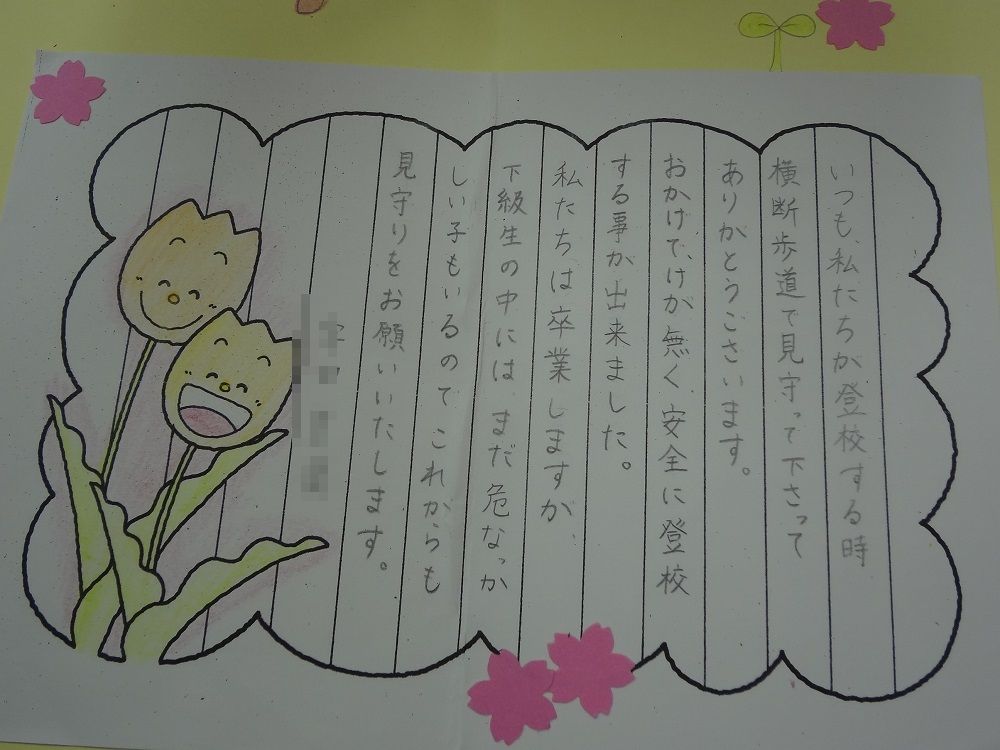 いつも、私たちが登校する時
横断歩道で見守って下さって
ありがとうございます。
おかげで、けが無く安全に登校
する事が出来ました。
私たちは卒業しますが、
下級生の中には まだ危なっか
しい子もいるので これからも
見守りをお願いいたします。